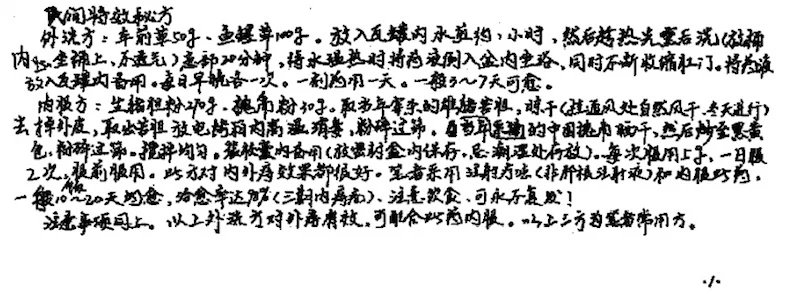 民间特效秘方
外洗方：车前草50g、鱼腥草100g。放入瓦罐内水煎约1小时，然后趁热先熏后洗（放椅
内坐椅上、不透气）患部20分钟，待水温热时将药液倒入盆内坐浴，同时不断收缩肛门。将药液
放入瓦罐内备用。每日早晚各一次。一剂药用一天。一般3～7天可愈。
内服方：生猪胆粉270g、槐角粉30g。取当年冬天的雄猪苦胆，晾干（挂通风处自然风干，冬天进行）
去掉外皮，取出苦胆放电烤箱内高温消毒，粉碎过筛。当年采摘的中国槐角晒干，然后炒至黑黄
色，粉碎过筛。搅拌均匀。装胶囊内备用（放密封盒内保存，忌潮湿处存放）。每次服用上方，一日服
2次，饭前服用。此方对内外痔效果都很好。笔者采用注射疗法（非肝根注射液）和内服此药，
一般10～20天均愈，治愈率达98%（三期内痔为）、注意饮食、可永不复发！
注意事项同上。以上外洗方对外痔有效，可配合此药内服。以上三方为笔者常用方。
·1·